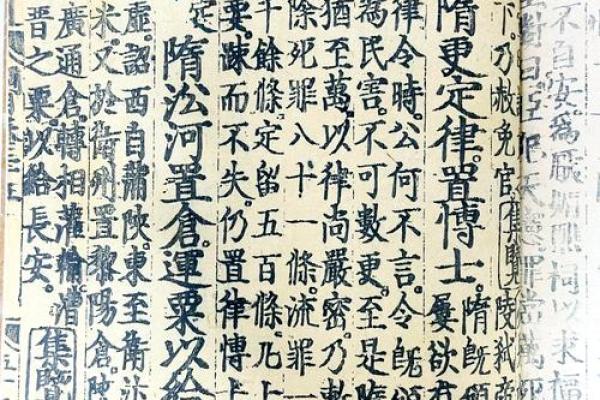 不自安爲厭媚祠以求福
對曰臣死天憲罪當萬死
下。乃赦免官。集覽陵弒帝
隋更定律。置博士。
隋既頒
屢欲有
律令時。公何不言。今既頒
爲民害。不可數更。至是隋
猶至萬。以律尚嚴密。乃敕
除死罪八十一條。流罪一
千餘條。定留五百條。凡十
要。疎而不失。仍置律博士
定
隋㳂河置倉。運粟以給
虛。詔西自蒲陝。東至衛汴
米。又於衛州置黎陽倉。陝
廣通倉。轉相灌輸。漕
晉之粟。以給長安。集覽